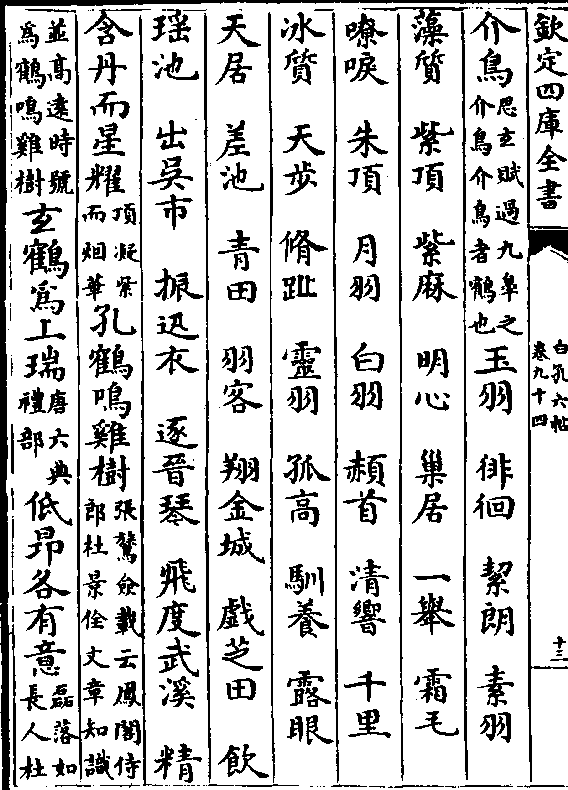 欽定四庫全書
白孔六帖
卷九十四
十三
介鳥 思玄賦過九臯之介鳥介鳥者鶴也 玉羽 徘徊 絜朗 素羽
藻質 紫頂 紫麻 明心 巢居 一舉 霜毛
嘹唳 朱頂 月羽 白羽 頳首 清響 千里
冰質 天步 脩趾 靈羽 孤高 馴養 露眼
天居 差池 青田 羽客 翔金城 戲芝田 飲
瑶池 出吳市 振迅衣 逐晉琴 飛度武溪 精
含丹而星耀 頂凝紫而烟華 孔鶴鳴雞樹 張鷟僉載云鳳閣侍郎杜景佺文章知識
並高遠時號為鶴鳴雞樹 玄鶴為上瑞 唐六典禮部 低昂各有意 磊落如長人杜